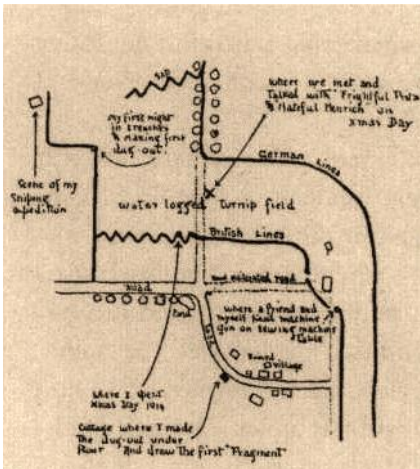 SAP
Where we met and
Talked with "Frightful Fritz
& Hateful Heinrich on
Xmas Day
my first night
in trenches
& making first
dug-out.
German Lines
Scene of my
Sniping
expedition
water logged turnip field
British Lines
Road
road
Pond
Lane
where a friend and
myself fixed machine
gun on sewing machine
table
Ruined
Village
where I spent
Xmas Day 1914
Cottage where I made
The dug-out under
floor and drew the first "Fragment"